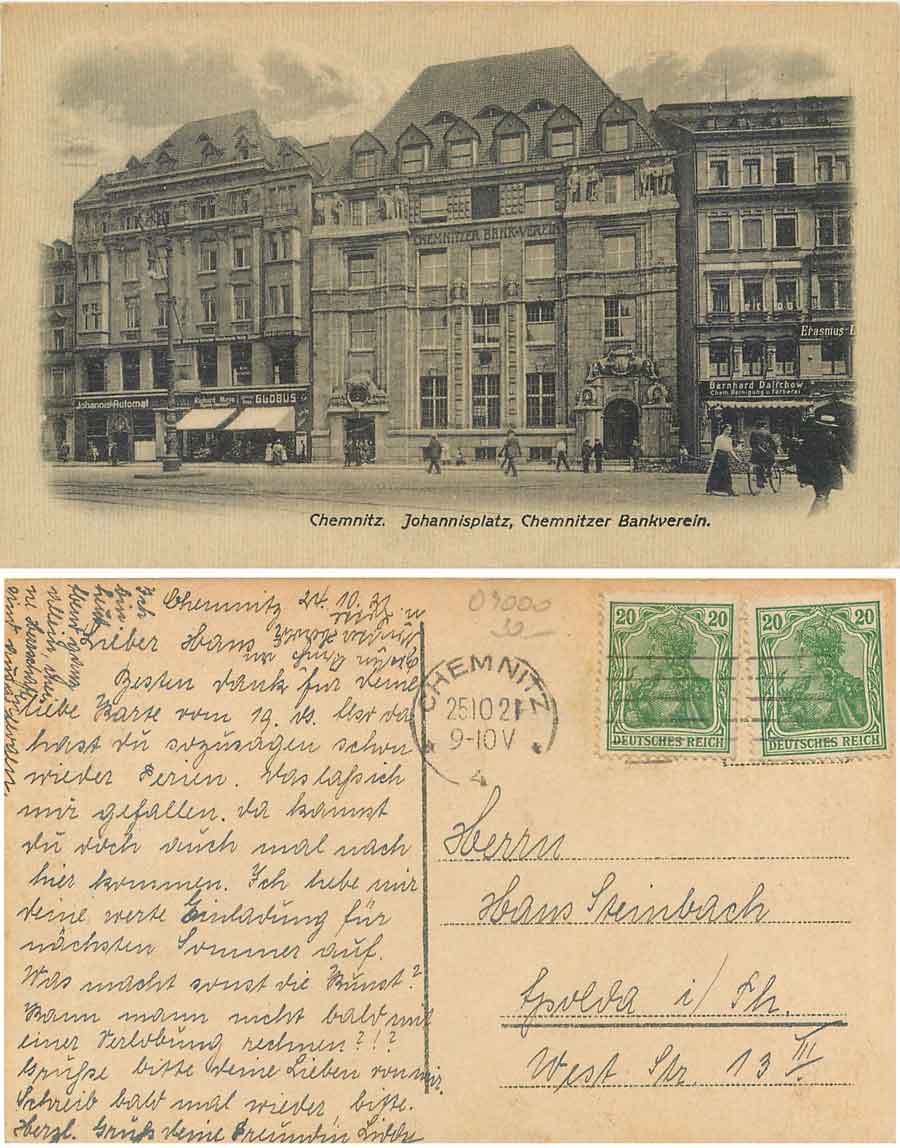 CHEMNITZER BANK-VEREIN
Erasmus-
Johannis-Automat
Richard
GLOBUS
Bernhard Dalichow
Chem. Reinigung u. Färberei
Chemnitz. Johannisplatz, Chemnitzer Bankverein.
Ich
bin
heut
eben ganz
allein. Mei
ne Herrschaften
sind
Chemnitz 24.10.21
04000
Lieber Hans
Besten dank für deine
liebe Karte vom 19. ds. Also da
hast du sozusagen schon
wieder Ferien. Das laß ich
mir gefallen. da kannst
du doch auch mal nach
hier kommen. Ich hebe mir
deine werte Einladung für
nächsten Sommer auf.
Was macht sonst die Kunst?
Kann mann nicht bald mit
einer Verlobung rechnen?!?
Grüße bitte deine Lieben von mir.
Schreib bald mal wieder, bitte.
Herzl. Gruß deine Freundin
CHEMNITZ
25 10 21
9-10 V
4
20 20
DEUTSCHES REICH
20 20
DEUTSCHES REICH
Herrn
Hans Steinbach
Apolda i/ Th.
West Str. 13 III